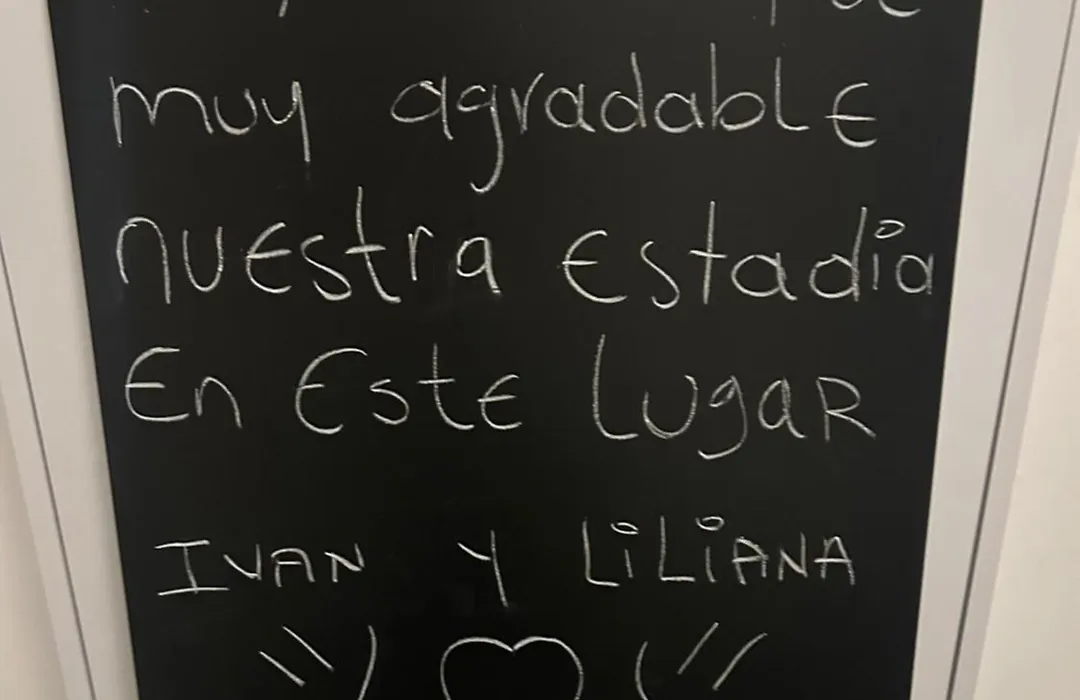 muy agradable
nuestra estadia
En Este Lugar
IVAN Y LILIANA